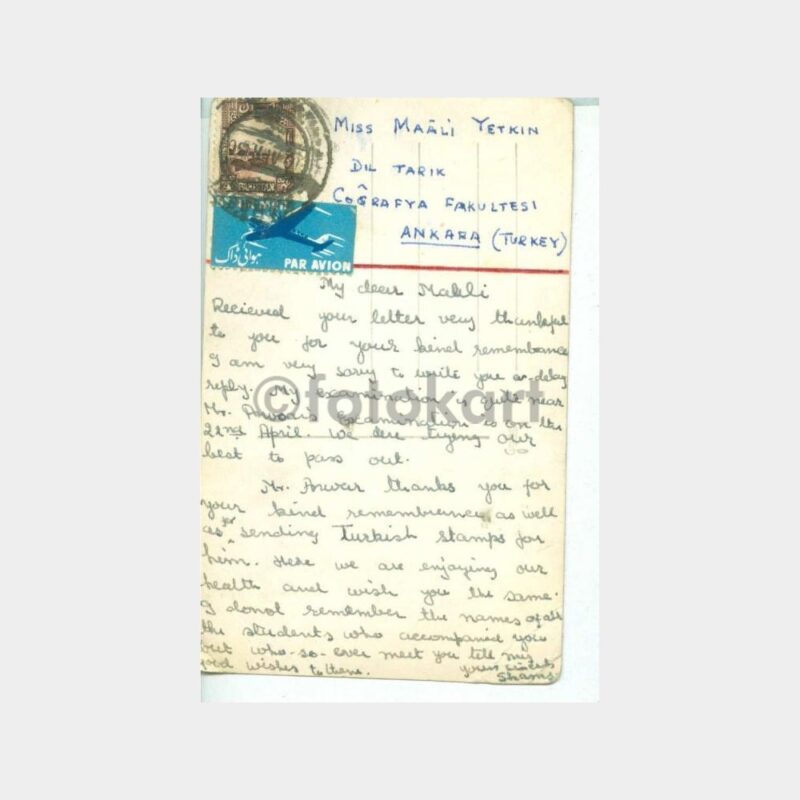 MISS MAÂLI YETKIN
DIL TARIK
COĞRAFYA FAKULTESI
ANKARA (TURKEY)
PAKISTAN
ہوائی ڈاک
PAR AVION
My dear Maali
Recieved your letter very thankful
to you for your kind remembrance
I am very sorry to write you a delay
reply. My examination is quite near
Mr. Anwar's examination is on the
22nd April. We are trying our
best to pass out.
Mr. Anwar thanks you for
your kind remembrance as well
as for sending Turkish stamps for
him. Here we are enjoying our
health and wish you the same.
I donot remember the names of all
the students who accompanied you
but who-so-ever meet you tell my
good wishes to them.
Shams
©fotokart